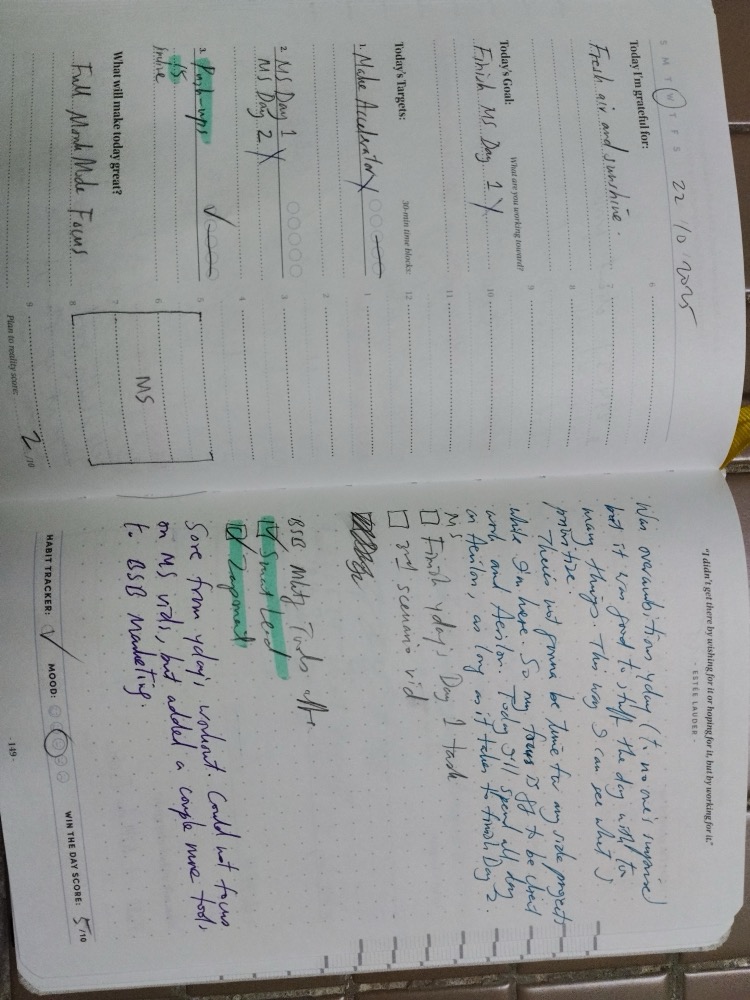 S M T W T F S 22 10 2025
Today I'm grateful for:
Fresh air and sunshine.
Today's Goal: What are you working toward?
Finish MS Day 1 X
Today's Targets: 30-min time blocks:
1. Make Accelerator X
2. MS Day 1 X
MS Day 2
3. Push-ups ✓
15
What will make today great?
Full Monk Mode Focus
6
7
8
9
10
11
12
1
2
3
4
5
6
7
8
9
MS
Plan to reality score: 2 /10
"I didn't get there by wishing for it or hoping for it, but by working for it."
- ESTÉE LAUDER -
Was overambitious yday (t. no one's surprise)
but it was good to stuff the day with too
many things. This way I can see what I
prioritize.
There's not gonna be time for my side projects
while I'm here. So my focus is to be
work and Aerilon. Today I'll spend all day
on Aerilon, as long as it takes to finish Day 2.
MS
Finish yday's Day 1 task
3rd scenario vid
BSB Mktg Tools
Smartlead
Sore from yday's workout. Could not focus
on MS vids, but added a couple more tools
to BSB Marketing.
HABIT TRACKER: ✓ MOOD: WIN THE DAY SCORE: 5 /10
- 149